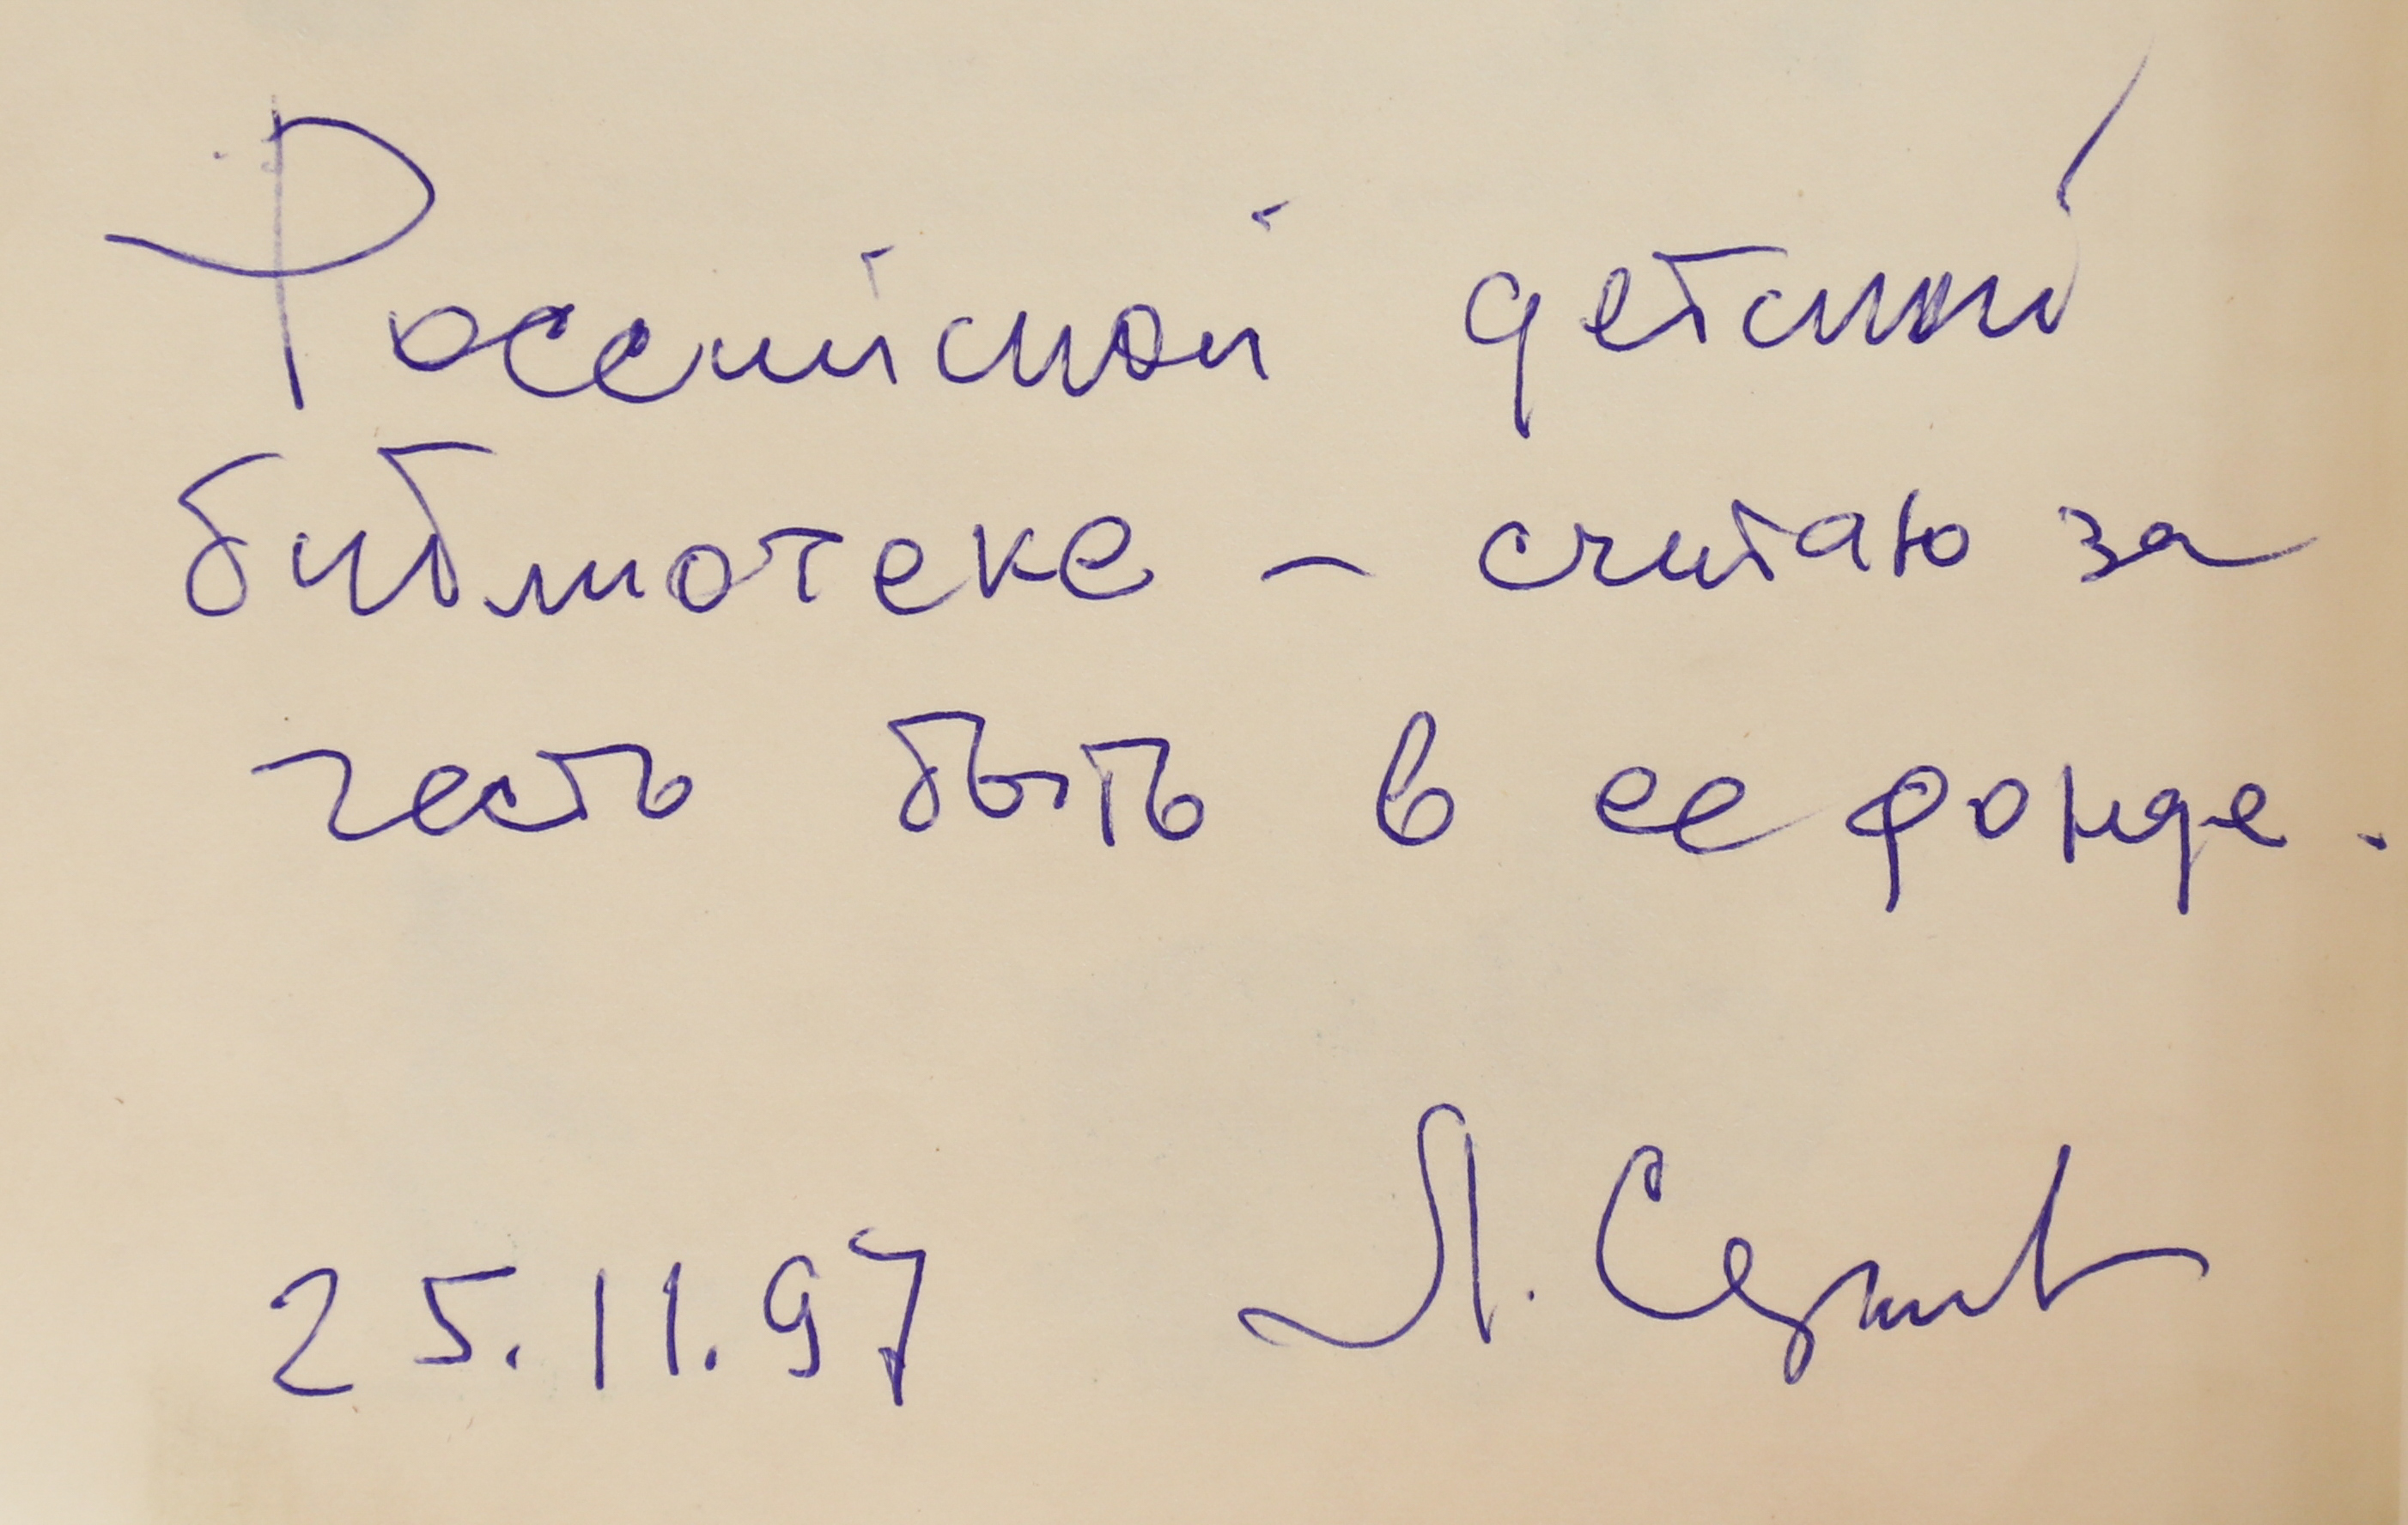 Российской детской
библиотеке – считаю за
честь быть в ее фонде.
25.11.97 Л.